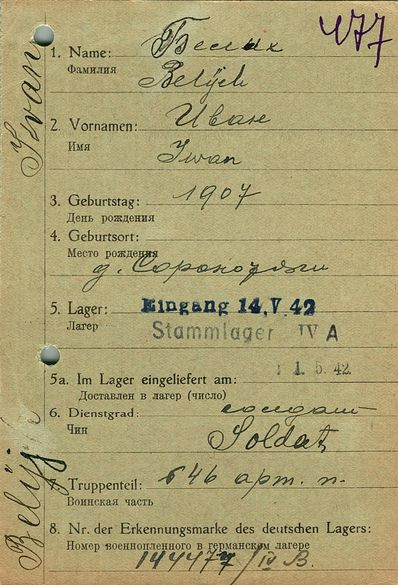 477
1. Name: Белых
Фамилия
Belÿch
2. Vornamen: Иван
Имя
Iwan
3. Geburtstag: 1907
День рождения
4. Geburtsort:
Место рождения
д.
5. Lager: Eingang 14.V.42
Лагер Stammlager IV A
1. 5. 42
5a. Im Lager eingeliefert am:
Доставлен в лагер (число)
6. Dienstgrad: солдат
Чин
Soldat
7. Truppenteil: 646 арт. п.
Воинская часть
8. Nr. der Erkennungsmarke des deutschen Lagers:
Номер военнопленного в германском лагере
144477/IV B.
Iwan